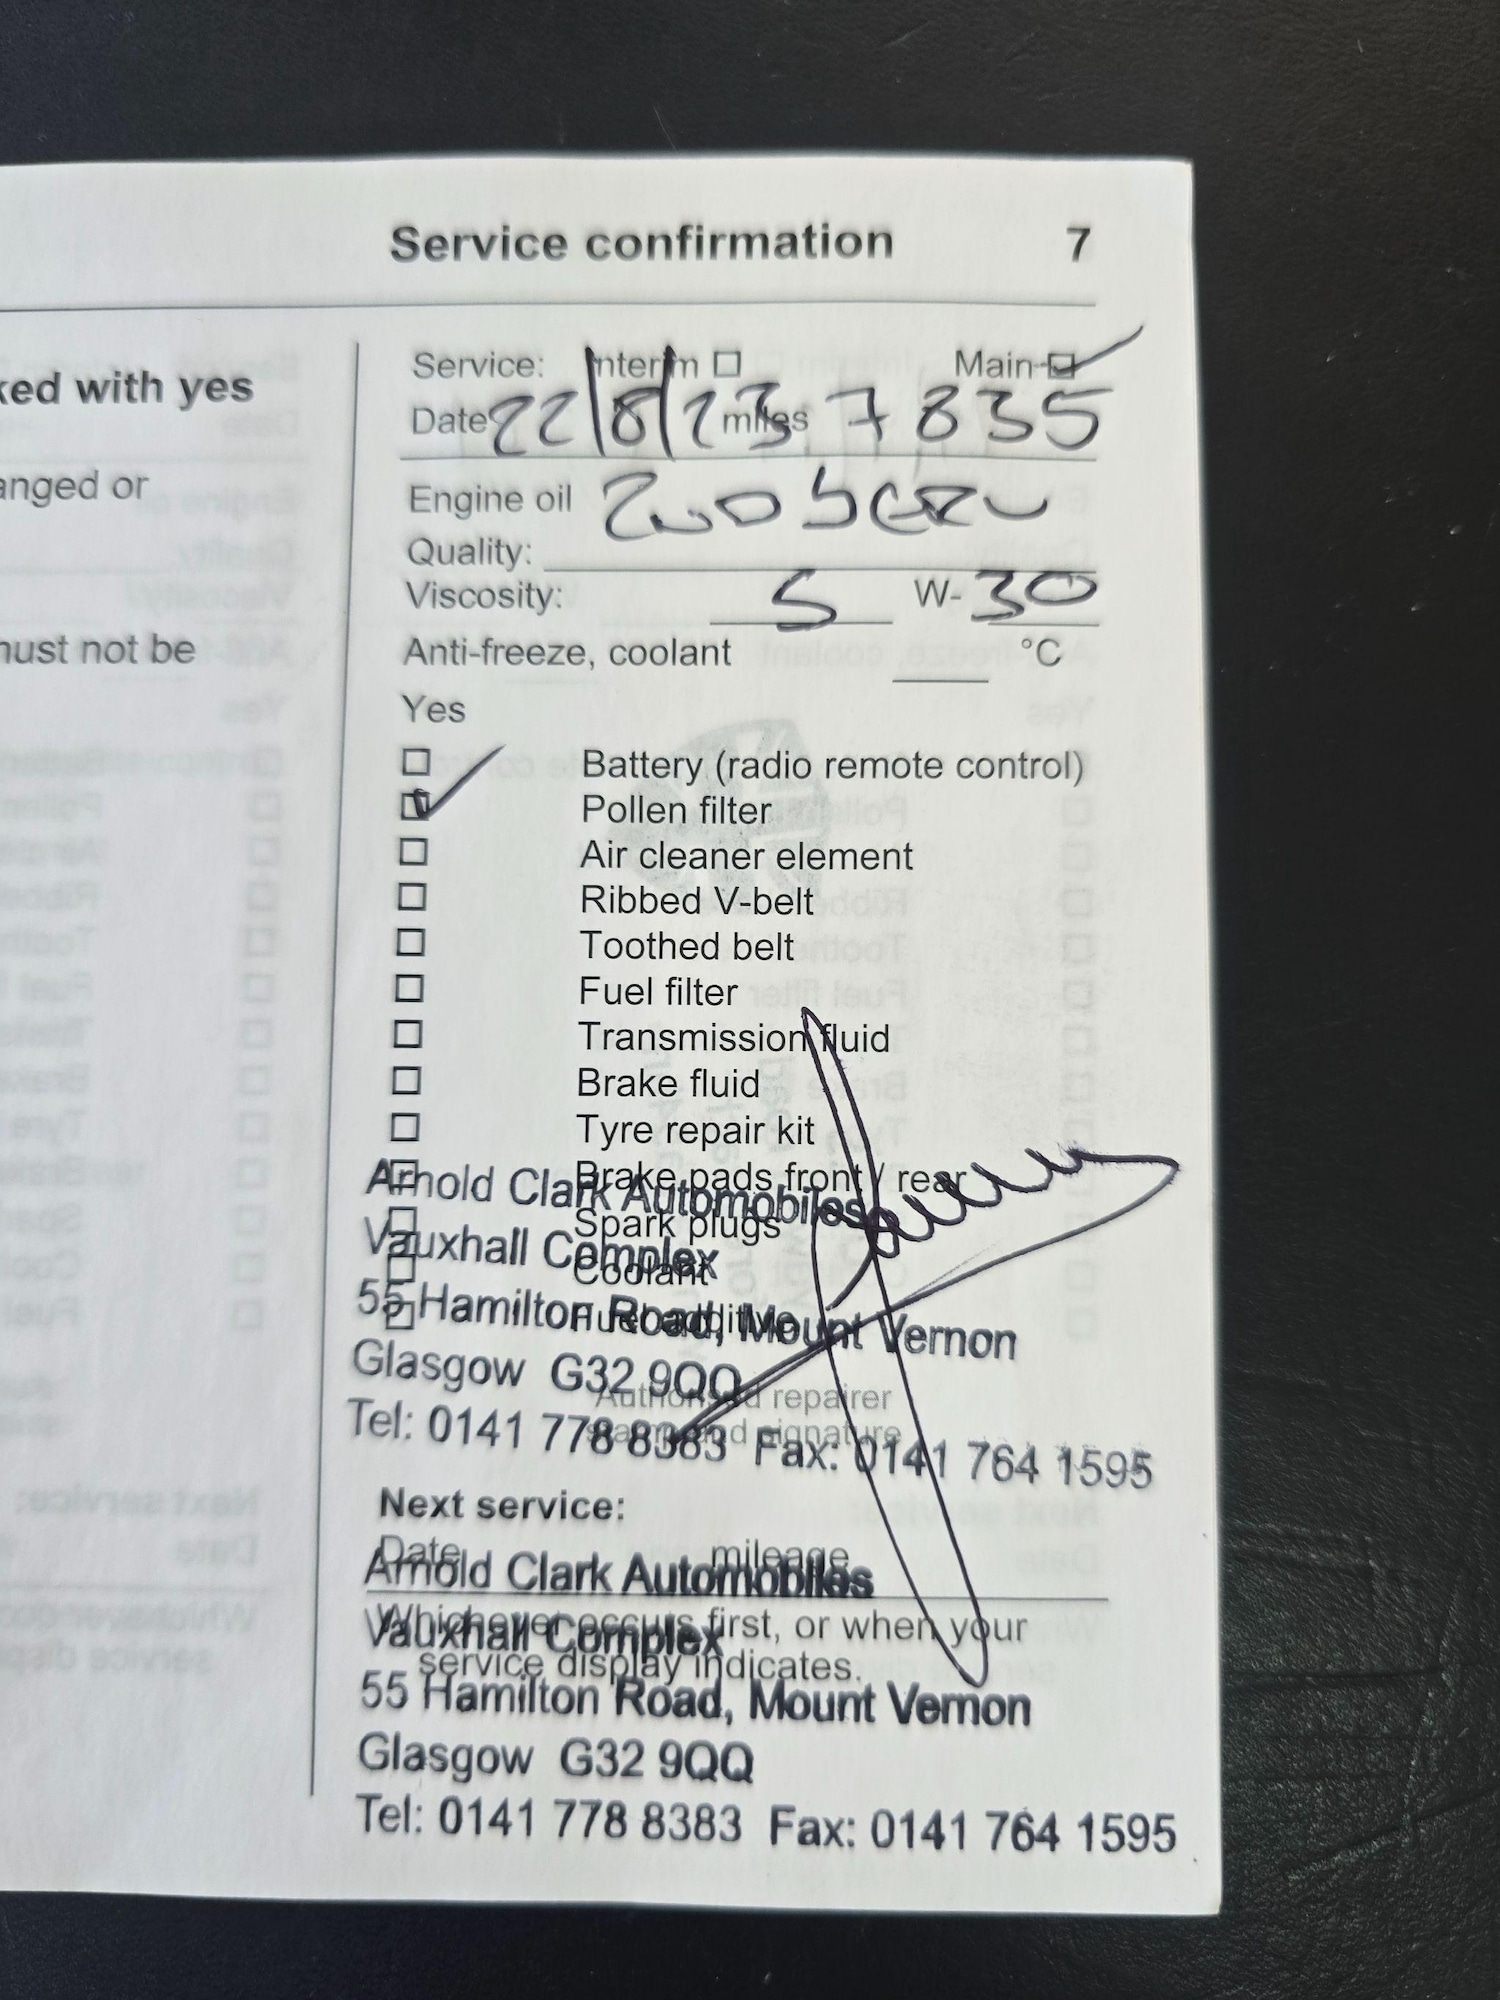 Service confirmation 7
ked with yes
anged or
must not be
Service: Interim Main
Date 22/8/23 miles 7835
Engine oil
Quality:
Viscosity: 5 W-30
Anti-freeze, coolant °C
Yes
Battery (radio remote control)
Pollen filter
Air cleaner element
Ribbed V-belt
Toothed belt
Fuel filter
Transmission fluid
Brake fluid
Tyre repair kit
Brake pads front / rear
Arnold Clark Automobiles
Spark plugs
Vauxhall Complex
Coolant
55 Hamilton Road, Mount Vernon
Fuel additive
Glasgow G32 9QQ
Authorised repairer
stamp and signature
Tel: 0141 778 8383 Fax: 0141 764 1595
Next service:
Date mileage
Arnold Clark Automobiles
Whichever occurs first, or when your
Vauxhall Complex
service display indicates.
55 Hamilton Road, Mount Vernon
Glasgow G32 9QQ
Tel: 0141 778 8383 Fax: 0141 764 1595